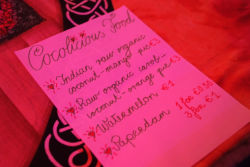 Cocolicious Food
Indian raw organic
coconut-mango pie €3
Raw organic carob-
coconut-orange pie €3
Watermelon €1
Papadam 1 for €0.50
3 for €1